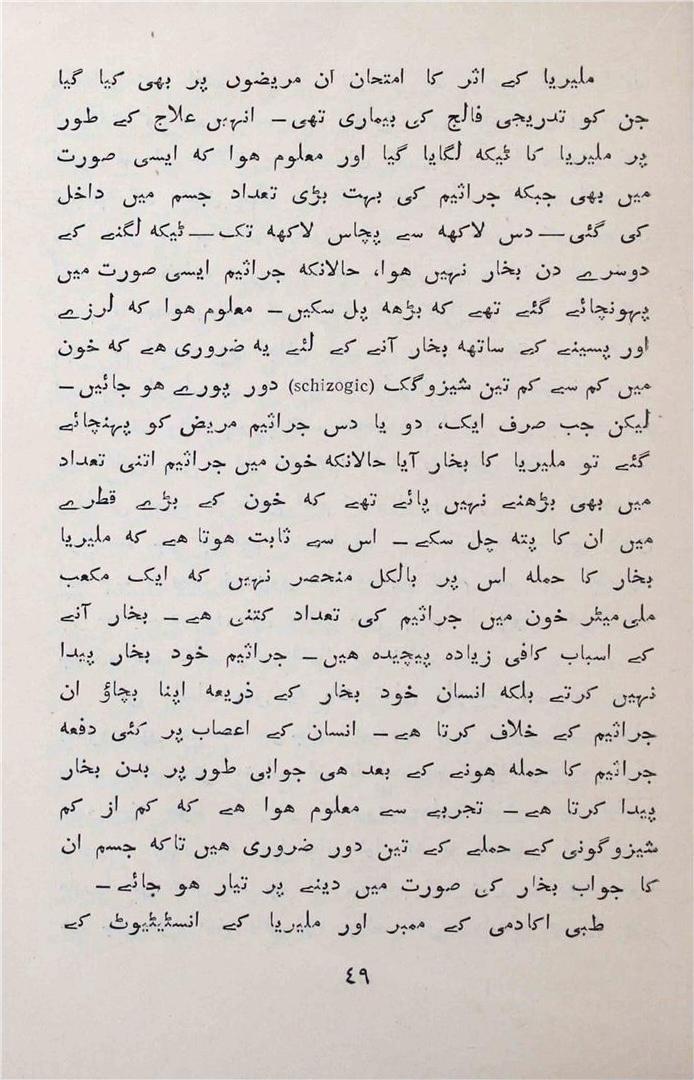 ملیریا کے اثر کا امتحان ان مریضوں پر بھی کیا گیا
جن کو تدریجی فالج کی بیماری تھی ۔ انہیں علاج کے طور
پر ملیریا کا ٹیکہ لگایا گیا اور معلوم ہوا کہ ایسی صورت
میں بھی جبکہ جراثیم کی بہت بڑی تعداد جسم میں داخل
کی گئی — دس لاکھہ سے پچاس لاکھہ تک — ٹیکہ لگنے کے
دوسرے دن بخار نہیں ہوا، حالانکہ جراثیم ایسی صورت میں
پہونچائے گئے تھے کہ بڑھہ پل سکیں ۔ معلوم ہوا کہ لرزے
اور پسینے کے ساتھہ بخار آنے کے لئے یہ ضروری ہے کہ خون
میں کم سے کم تین شیزوگک (schizogic) دور پورے ہو جائیں ۔
لیکن جب صرف ایک، دو یا دس جراثیم مریض کو پہنچائے
گئے تو ملیریا کا بخار آیا حالانکہ خون میں جراثیم اتنی تعداد
میں بھی بڑھنے نہیں پائے تھے کہ خون کے بڑے قطرے
میں ان کا پتہ چل سکے ۔ اس سے ثابت ہوتا ہے کہ ملیریا
بخار کا حملہ اس پر بالکل منحصر نہیں کہ ایک مکعب
ملی میٹر خون میں جراثیم کی تعداد کتنی ہے ۔ بخار آنے
کے اسباب کافی زیادہ پیچیدہ ہیں ۔ جراثیم خود بخار پیدا
نہیں کرتے بلکہ انسان خود بخار کے ذریعہ اپنا بچاؤ ان
جراثیم کے خلاف کرتا ہے ۔ انسان کے اعصاب پر کئی دفعہ
جراثیم کا حملہ ہونے کے بعد ہی جوابی طور پر بدن بخار
پیدا کرتا ہے ۔ تجربے سے معلوم ہوا ہے کہ کم از کم
شیزوگونی کے حملے کے تین دور ضروری ہیں تاکہ جسم ان
کا جواب بخار کی صورت میں دینے پر تیار ہو جائے ۔
طبی اکادمی کے ممبر اور ملیریا کے انسٹیٹیوٹ کے
٤٩